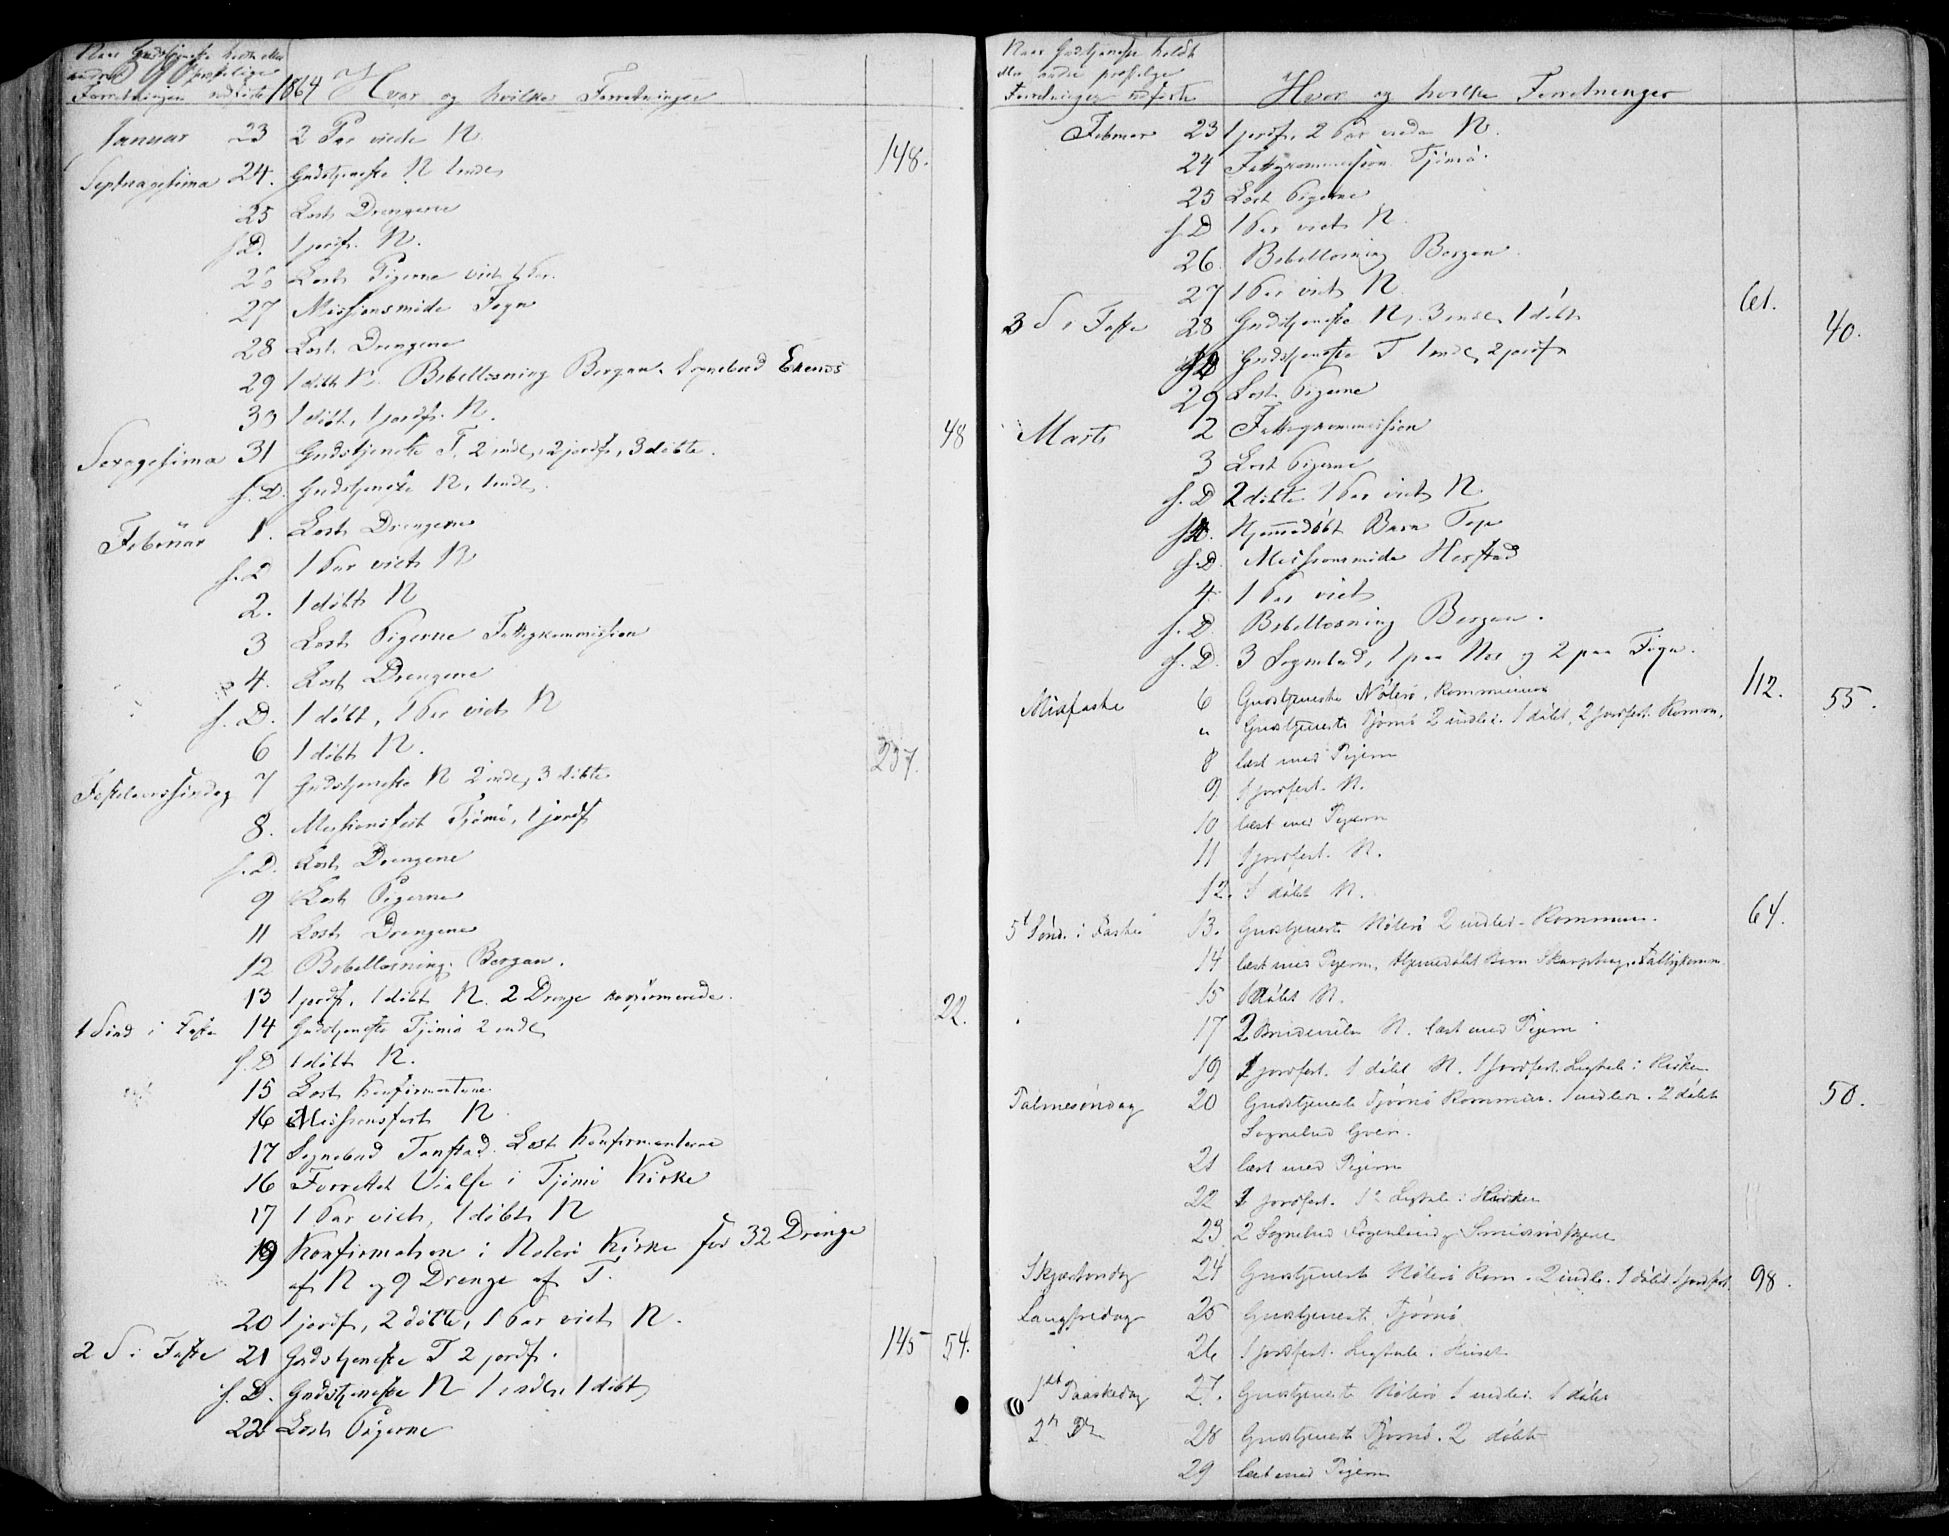 Naar Gudstjeneste holdt eller
andre præstelige
Forretninger udførte 1864 Hvor og hvilke Forretninger
Januar 23 2 Par viede N.
148.
Septuagesima 24. Gudstjeneste N 1 indl.
25 Læst Drengene
s. D. 1 jordf. N.
26 Læst Pigerne viet 1 Par.
27 Missionsmøde Fogn
28 Læst Drengene
29 1 døbt N. Bibellæsning Bergan. Sognebud Ekenes
30 1 døbt, 1 jordf. N.
48
Sexagesima 31 Gudstjeneste T. 2 indl., 2 jordf., 3 døbte.
s. D. Gudstjeneste N. 1 indl.
Februar 1. Læst Drengene
s. D 1 Par viet N
2. 1 døbt N
3 Læst Pigerne Fattigkommission
4. Læst Drengene
s. D. 1 døbt, 1 Par viet N
6 1 døbt N.
237.
Fastelavnssøndag 7 Gudstjeneste N 2 indl., 3 døbte
8. Missionsfest Tjømø, 1 jordf
s. D. Læst Drengene
9 Læst Pigerne
11 Læst Drengene
12 Bibellæsning Bergan.
13 1 jordf., 1 døbt N. 2 Drenge konfirmerede.
22.
1 Sønd i Faste 14 Gudstjeneste Tjømø 2 indl.
s. D 1 døbt N.
15 Læst Konfirmanterne.
16 Missionsfest N
17 Sognebud Tanstad. Læst Konfirmanterne
16 Forrettet Vielse i Tjømø Kirke
17 1 Par viet, 1 døbt N
19 Konfirmation i Nøterø Kirke for 32 Drenge
af N og 9 Drenge af T.
20 1 jordf, 2 døbte, 1 Par viet N.
2 S i Faste 21 Gudstjeneste T 2 jordf.
145 54.
s. D. Gudstjeneste N 1 indl. 1 døbt
22 Læst Pigerne
Naar Gudstjeneste holdt
eller andre præstelige
Forretninger udførte Hvor og hvilke Forretninger
Februar 23 1 jordf. 2 Par viede N.
24 Fattigkommission Tjømø.
25 Læst Pigerne
s. D 1 Par viet N.
26. Bibellæsning Bergan.
27 1 Par viet N
61.
3 S i Faste 28 Gudstjeneste N, 3 indl. 1 døbt
40.
s. D Gudstjeneste T 1 indl, 2 jordf
29 Læst Pigerne
Marts 2 Fattigkommission
3 Læst Pigerne
s. D 2 døbte 1 Par viet N
s. D. Hjemmedøbt Barn
s. D. Missionsmøde
4 1 Par viet
s. D. Bibellæsning Bergan.
s. D. 3 Sognebud, 1 paa Nes og 2 paa Fogn.
112.
Midfaste 6 Gudstjeneste Nøterø, Kommunion
55.
" Gudstjeneste Tjømø 2 indled. 1 døbt, 2 jordfest. Komm.
8 læst med Pigerne
9 1 jordfest. N.
10 læst med Pigerne
11 1 jordfest. N.
12. 1 døbt N.
64.
5t Sønd. i Faste 13. Gudstjeneste Nøterø 2 indled. Kommun.
14 læst med Pigerne, Hjemmedøbt Barn Fattigkomm.
15 1 døbt N.
17 2 Brudevielser N. læst med Pigerne
19 1 jordfest. 1 døbt N. 1 jordfest. Ligtale i Kirken
50.
Palmesøndag 20 Gudstjeneste Tjømø Kommun. 1 indled. 2 døbt
Sognebud
21 læst med Pigerne
22 1 jordfest. Ligtale i Kirken
23 2 Sognebud
Skjærtorsdag 24 Gudstjeneste Nøterø Kom. 2 indl. 1 døbt 1 jordfest. 98.
Langfredag 25 Gudstjeneste Tjømø
26 1 jordfest. Ligtale i Huset
1ste Paaskedag 27. Gudstjeneste Nøterø 1 indled. 1 døbt
2n Do 28 Gudstjeneste Tjømø. 2 døbt
29 læst med Pigerne